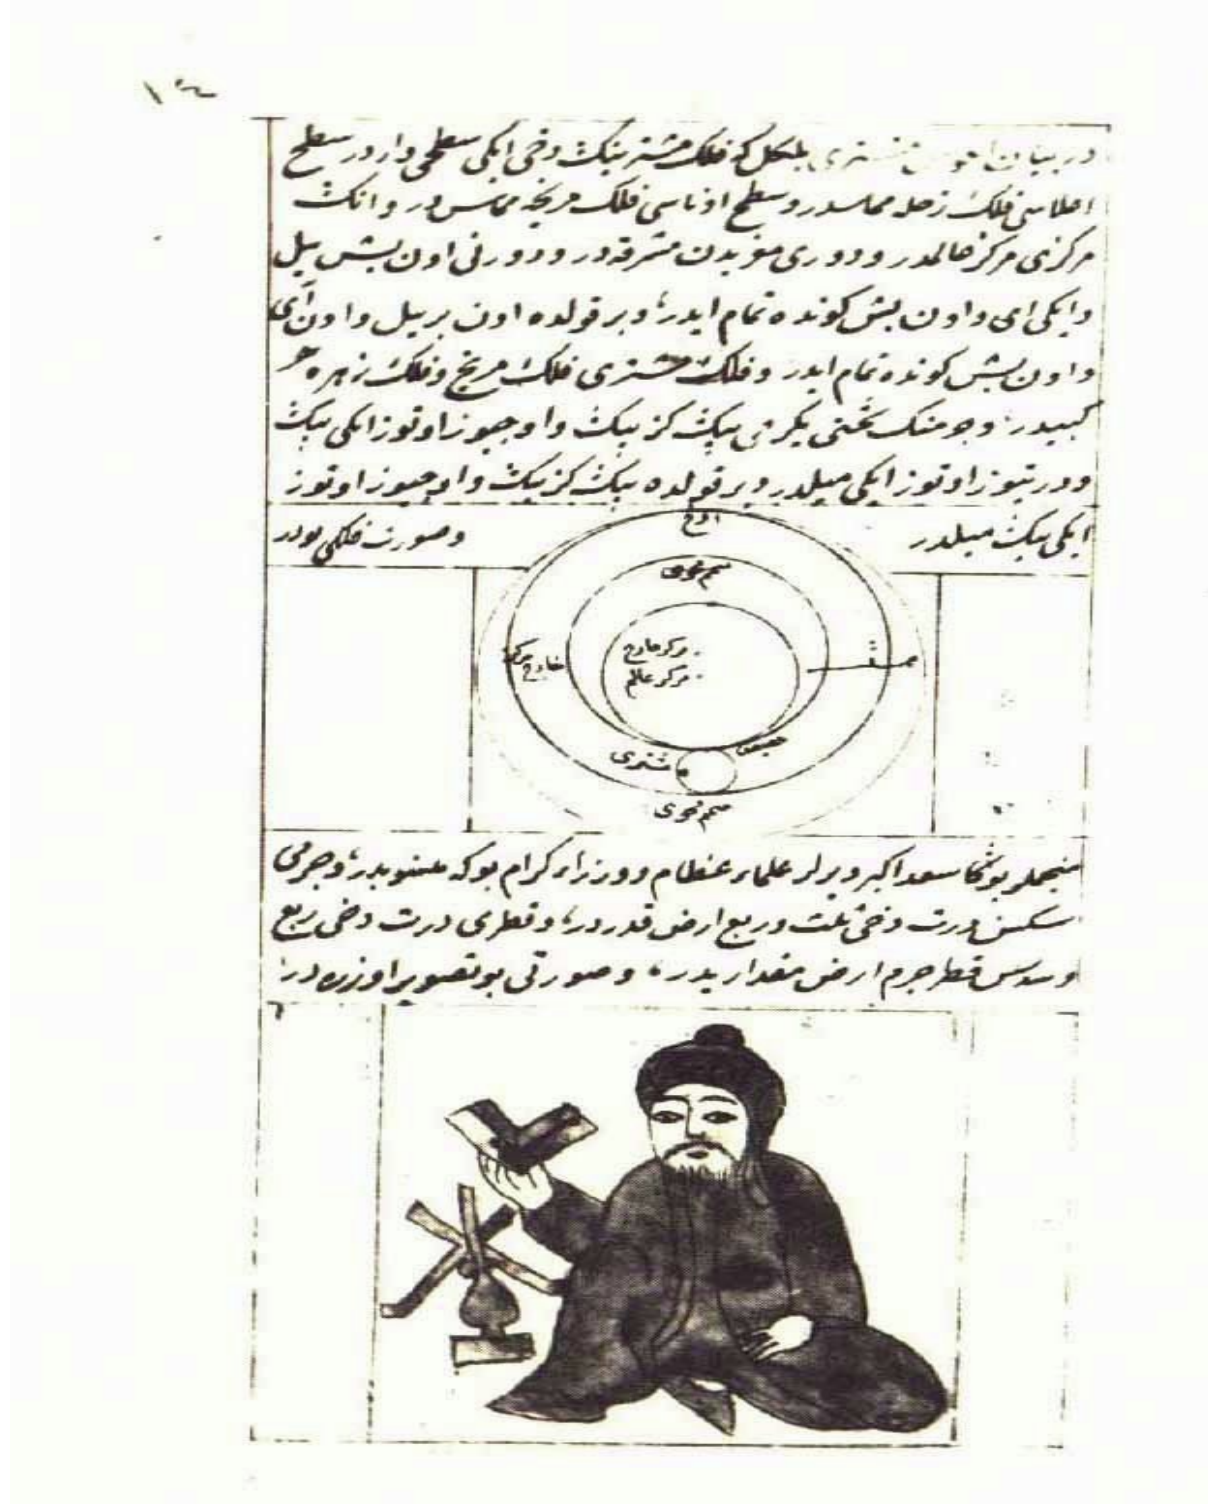 در بيان احوال مشترى بلكل كه فلك مشترينك دخى ايكى سطحى واردر سطح
اعلاسى فلك زحله مماسدر وسطح ادناسى فلك مريخه مماس در وانك
مركزى مركز عالمدر ودورى مغربدن مشرقه در ودورنى اون بش ييل
وايكى اى واون بش كونده تمام ايدر، وبر قولده اون بر ييل واون آى
واون بش كونده تمام ايدر وفلك مشترى فلك مريخ وفلك زهره
كبيدر وجرمنك ثخنى يكرمى بيك كز بيك واوچيوز اوتوز ايكى بيك
ودرتيوز اوتوز ايكى ميلدر وبر قولده بيك كز بيك واوچيوز اوتوز
ايكى بيك ميلدر وصورت فلكى بودر
اوج
متمم حوى
مركز خارج
خارج مركز
مركز عالم
حضيض
مشترى
متمم محوى
منجملر بوڭا سعد اكبر ديرلر علماء عظام ووزراء كرام بوكه منسوبدر، وجرمى
سكسن درت دخى ثلث وربع ارض قدردر، وقطرى درت دخى ربع
وسدس قطر جرم ارض مقداريدر، وصورتى بو تصوير اوزره در